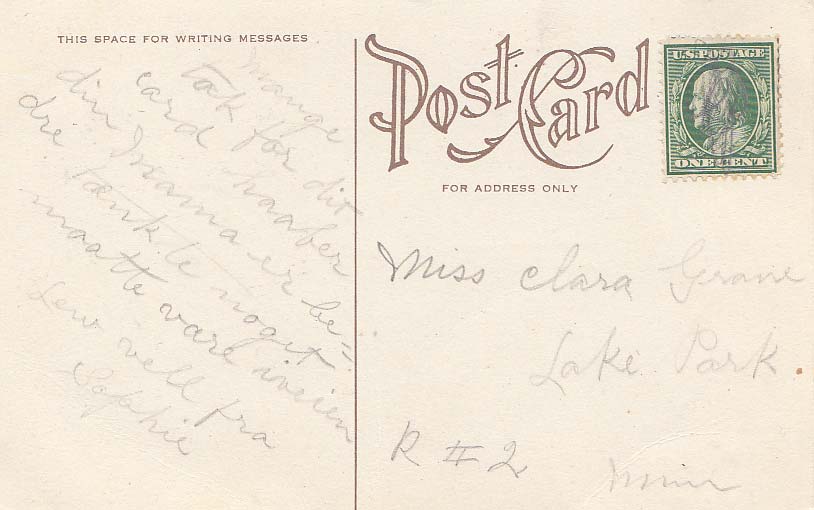 THIS SPACE FOR WRITING MESSAGES
mange
tak for dit
card haaber
din Mama er be-
dre tænkte noget
maatte være iveien
Lev vell fra
Sophie
Post Card
FOR ADDRESS ONLY
U.S. POSTAGE
ONE CENT
Miss Clara
Lake Park
R # 2
Minn